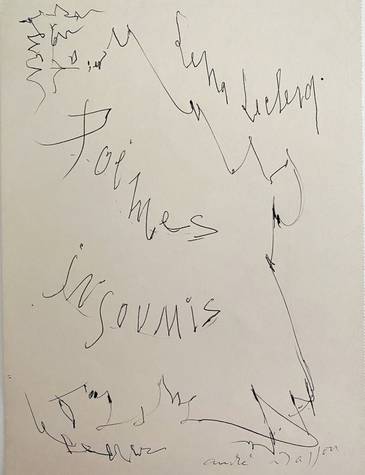 Lena Leclercq
Poèmes
insoumis
andré masson